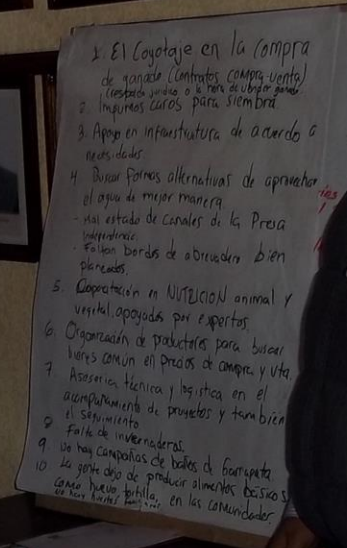 1. El Coyotaje en la compra
de ganado. (Contratos compra-venta)
o la hora de
2. Insumos caros para siembra
3. Apoyo en infraestructura de acuerdo a
necesidades
4. Buscar formas alternativas de aprovechar
el agua de mejor manera.
- Mal estado de canales de la Presa
independencia.
- Faltan bordos de abrevadero bien
planeados.
5. Capacitación en NUTRICION animal y
vegetal, apoyados por expertos.
6. Organización de productores para buscar
común en precios de compra y vta.
7. Asesoria técnica y logistica en el
acompañamiento de proyectos y tambien
el seguimiento
8 Falta de invernaderos.
9. No hay campañas de baños de Garrapata.
10. La gente dejo de producir alimentos basicos
como huevo, tortilla, en las comunidades
No hay huertos